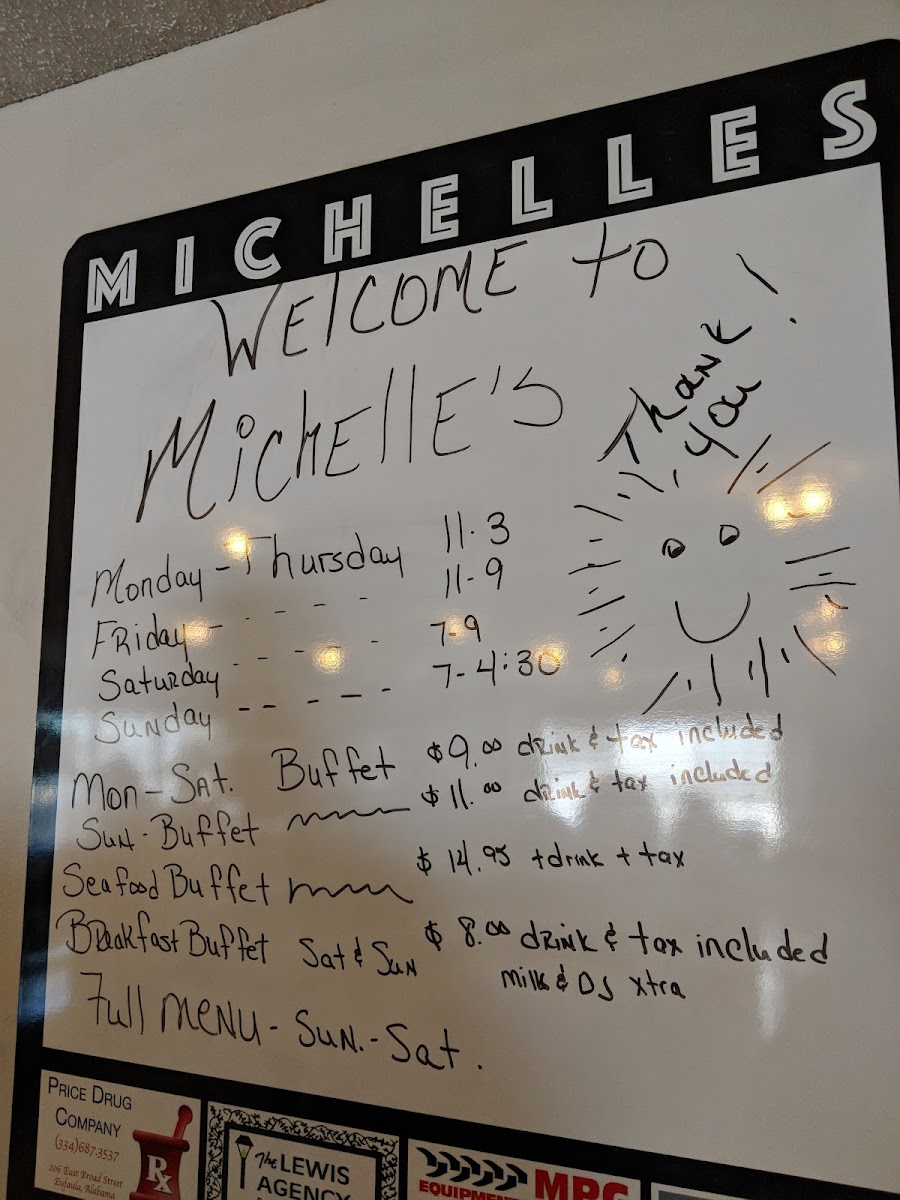 MICHELLES
WElcOME to
MichEllE's
Thank
you!
Monday - Thursday 11-3
Friday - - - - - 11-9
Saturday - - - - 7-9
Sunday - - - - - 7-4:30
Mon-Sat. Buffet $9.00 drink & tax included
Sun-Buffet $11.00 drink & tax included
Seafood Buffet $14.95 + drink + tax
Breakfast Buffet Sat & Sun $8.00 drink & tax included
Milk & OJ xtra
Full MENU - Sun.-Sat.
PRICE DRUG
COMPANY
(334)687-3537
206 East Broad Street
Eufaula, Alabama
Rx
The LEWIS
AGENCY
EQUIPMENT